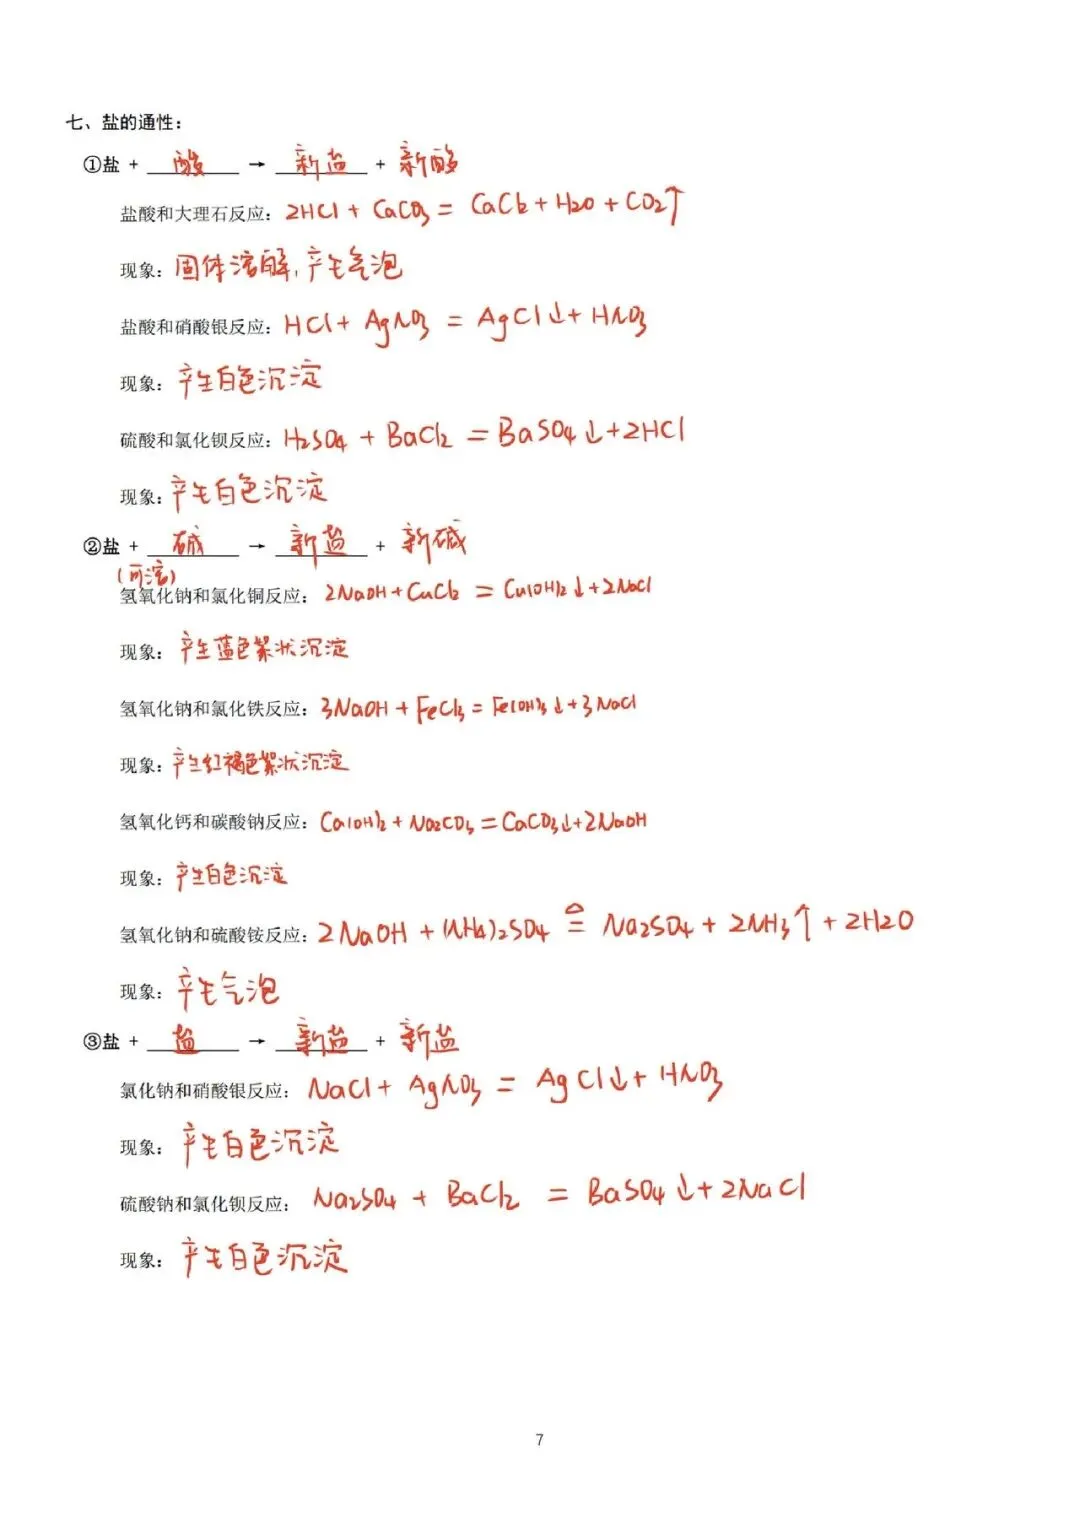 七、盐的通性：
①盐 + 酸 → 新盐 + 新酸
盐酸和大理石反应：2HCl + CaCO3 = CaCl2 + H2O + CO2↑
现象：固体溶解,产生气泡
盐酸和硝酸银反应：HCl + AgNO3 = AgCl↓ + HNO3
现象：产生白色沉淀
硫酸和氯化钡反应：H2SO4 + BaCl2 = BaSO4↓+2HCl
现象：产生白色沉淀
②盐 + 碱 → 新盐 + 新碱
(可溶)
氢氧化钠和氯化铜反应：2NaOH + CuCl2 = Cu(OH)2↓+2NaCl
现象：产生蓝色絮状沉淀
氢氧化钠和氯化铁反应：3NaOH + FeCl3 = Fe(OH)3↓+3NaCl
现象：产生红褐色絮状沉淀
氢氧化钙和碳酸钠反应：Ca(OH)2 + Na2CO3 = CaCO3↓+2NaOH
现象：产生白色沉淀
氢氧化钠和硫酸铵反应：2NaOH + (NH4)2SO4 ≜ Na2SO4 + 2NH3↑ + 2H2O
现象：产生气泡
③盐 + 盐 → 新盐 + 新盐
氯化钠和硝酸银反应：NaCl + AgNO3 = AgCl↓ + HNO3
现象：产生白色沉淀
硫酸钠和氯化钡反应：Na2SO4 + BaCl2 = BaSO4↓+2NaCl
现象：产生白色沉淀
7